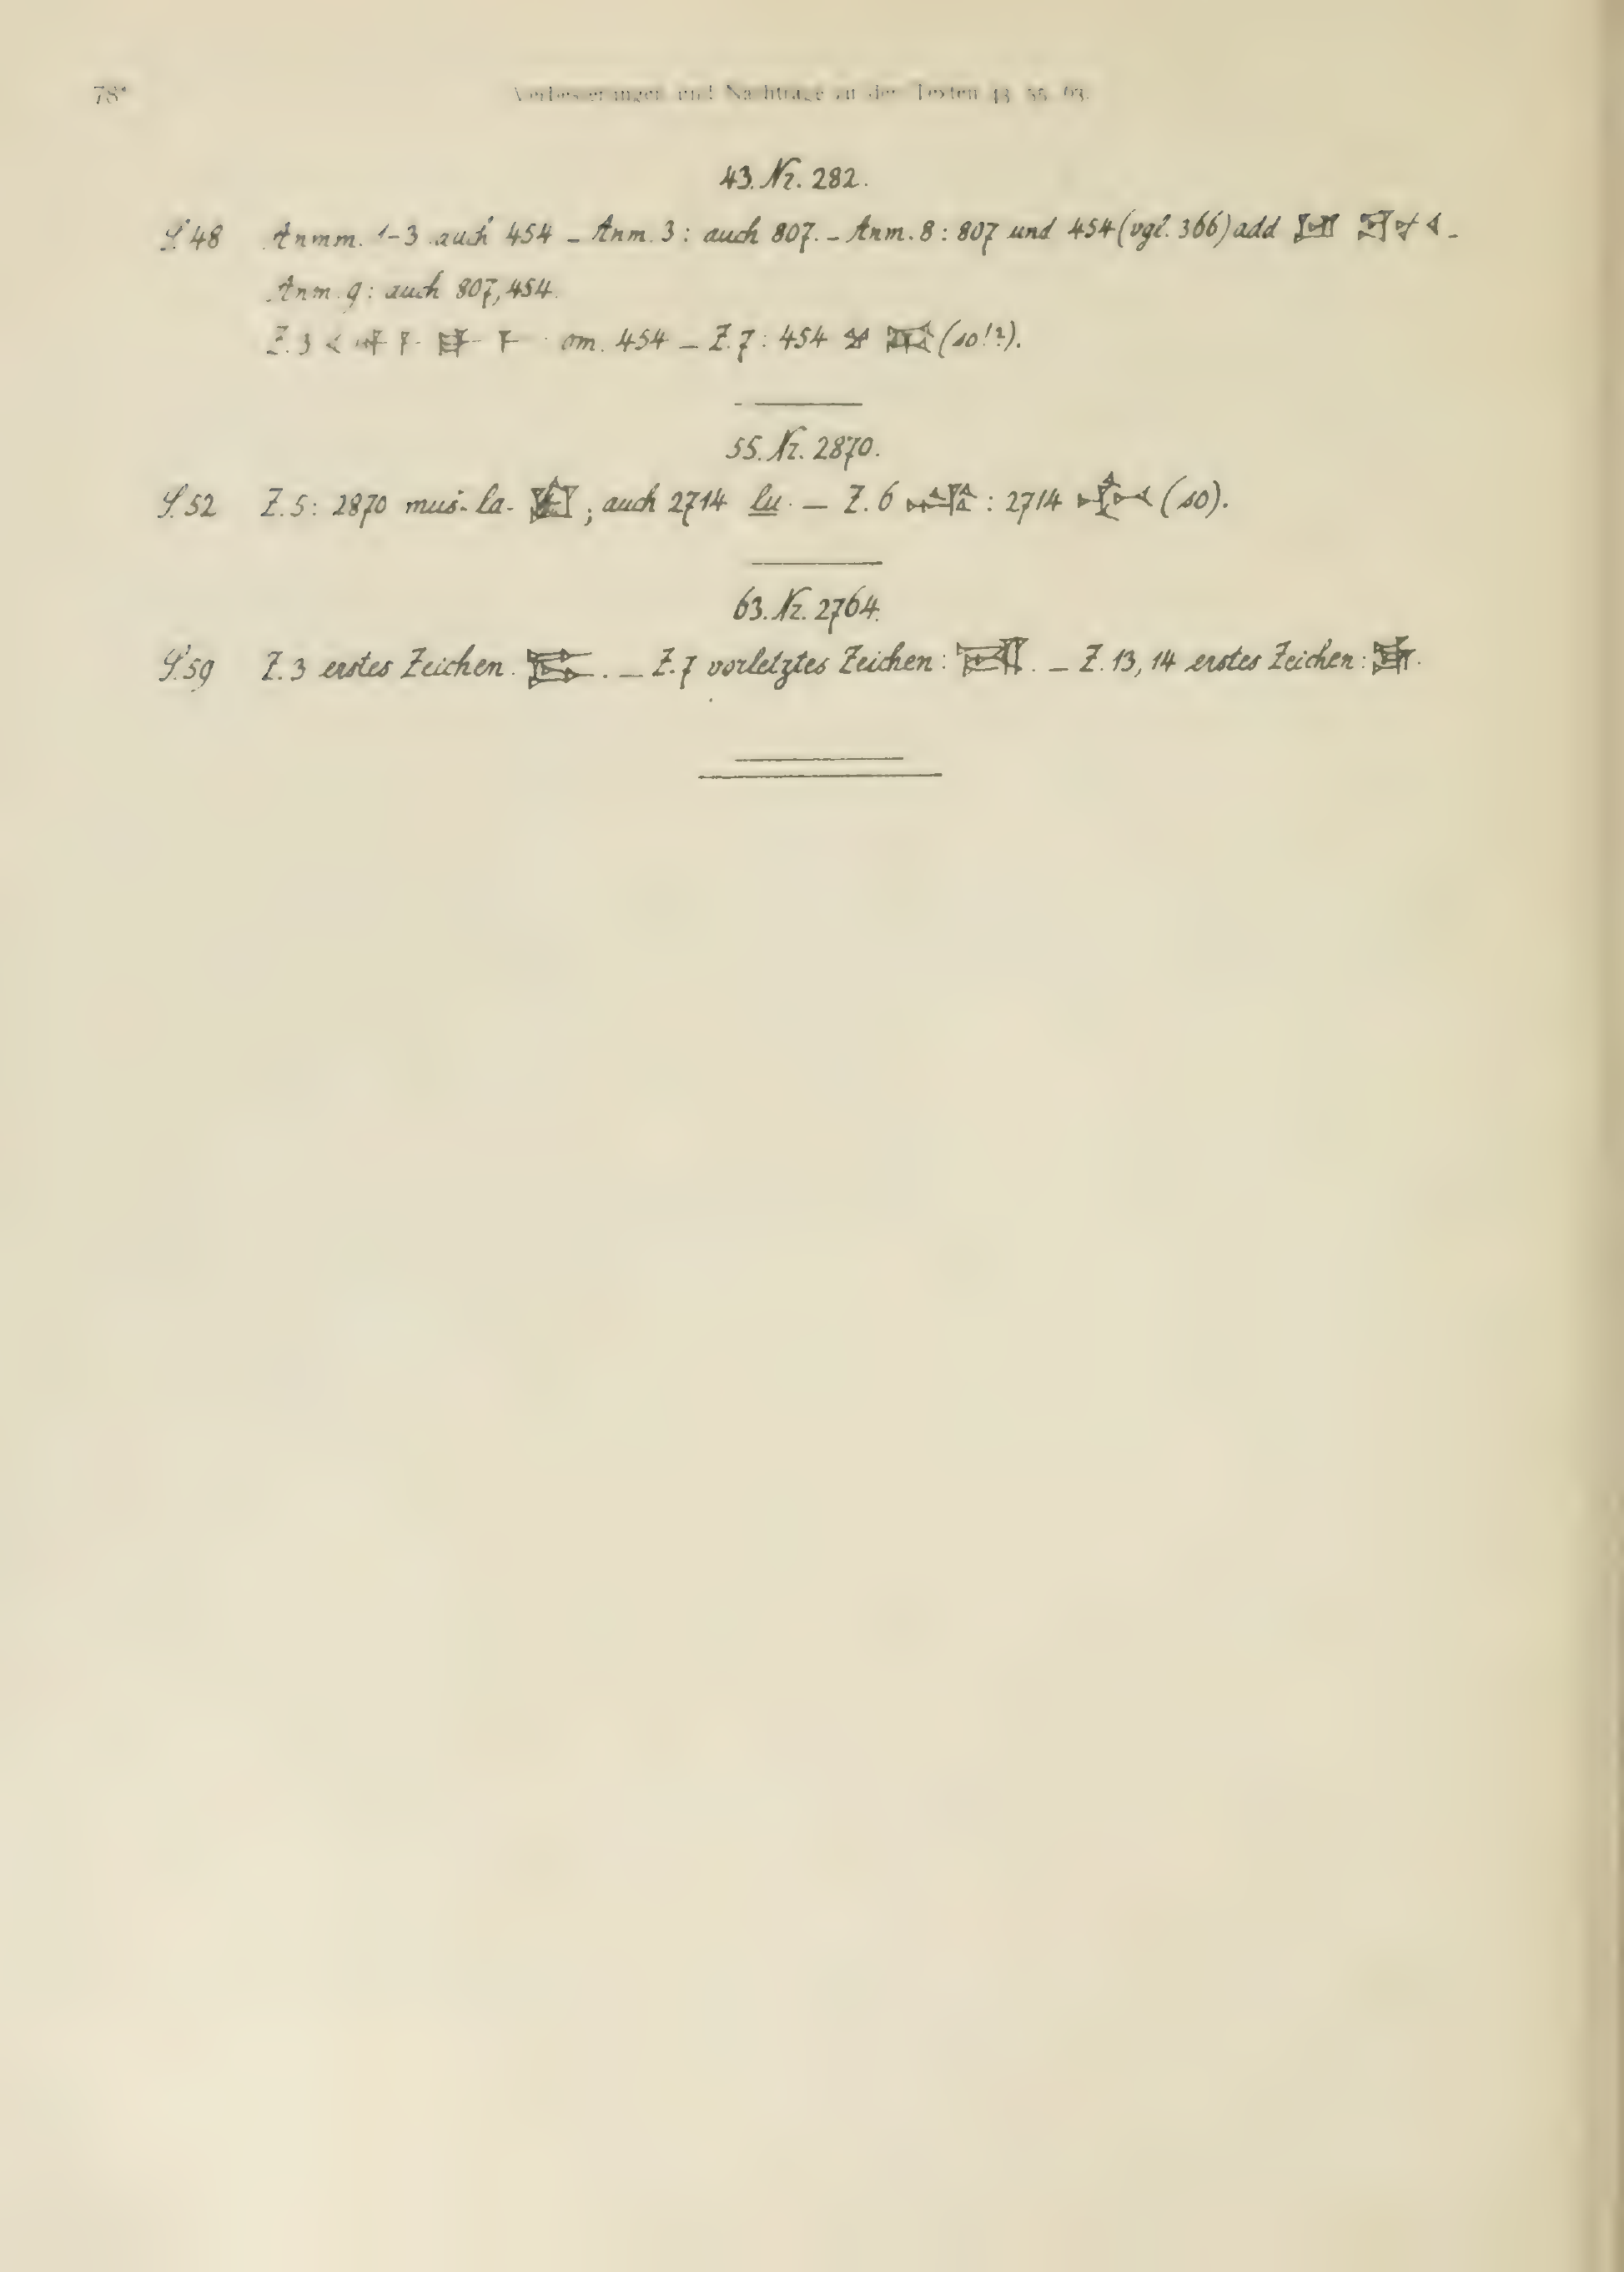 78*
Verbesserungen und Nachträge zu den Texten 43. 55. 63.
43. Nr. 282.
S. 48 Anmm. 1-3 auch 454 – Anm. 3: auch 807. – Anm. 8: 807 und 454 (vgl. 366) add –
Anm. 9: auch 807, 454.
Z. 3 om. 454 – Z. 7: 454 (so!?).
55. Nr. 2870.
S. 52 Z. 5: 2870 muš-la- ; auch 2714 lu. – Z. 6 : 2714 (so).
63. Nr. 2764.
S. 59 Z. 3 erstes Zeichen . – Z. 7 vorletztes Zeichen: . – Z. 13, 14 erstes Zeichen: .